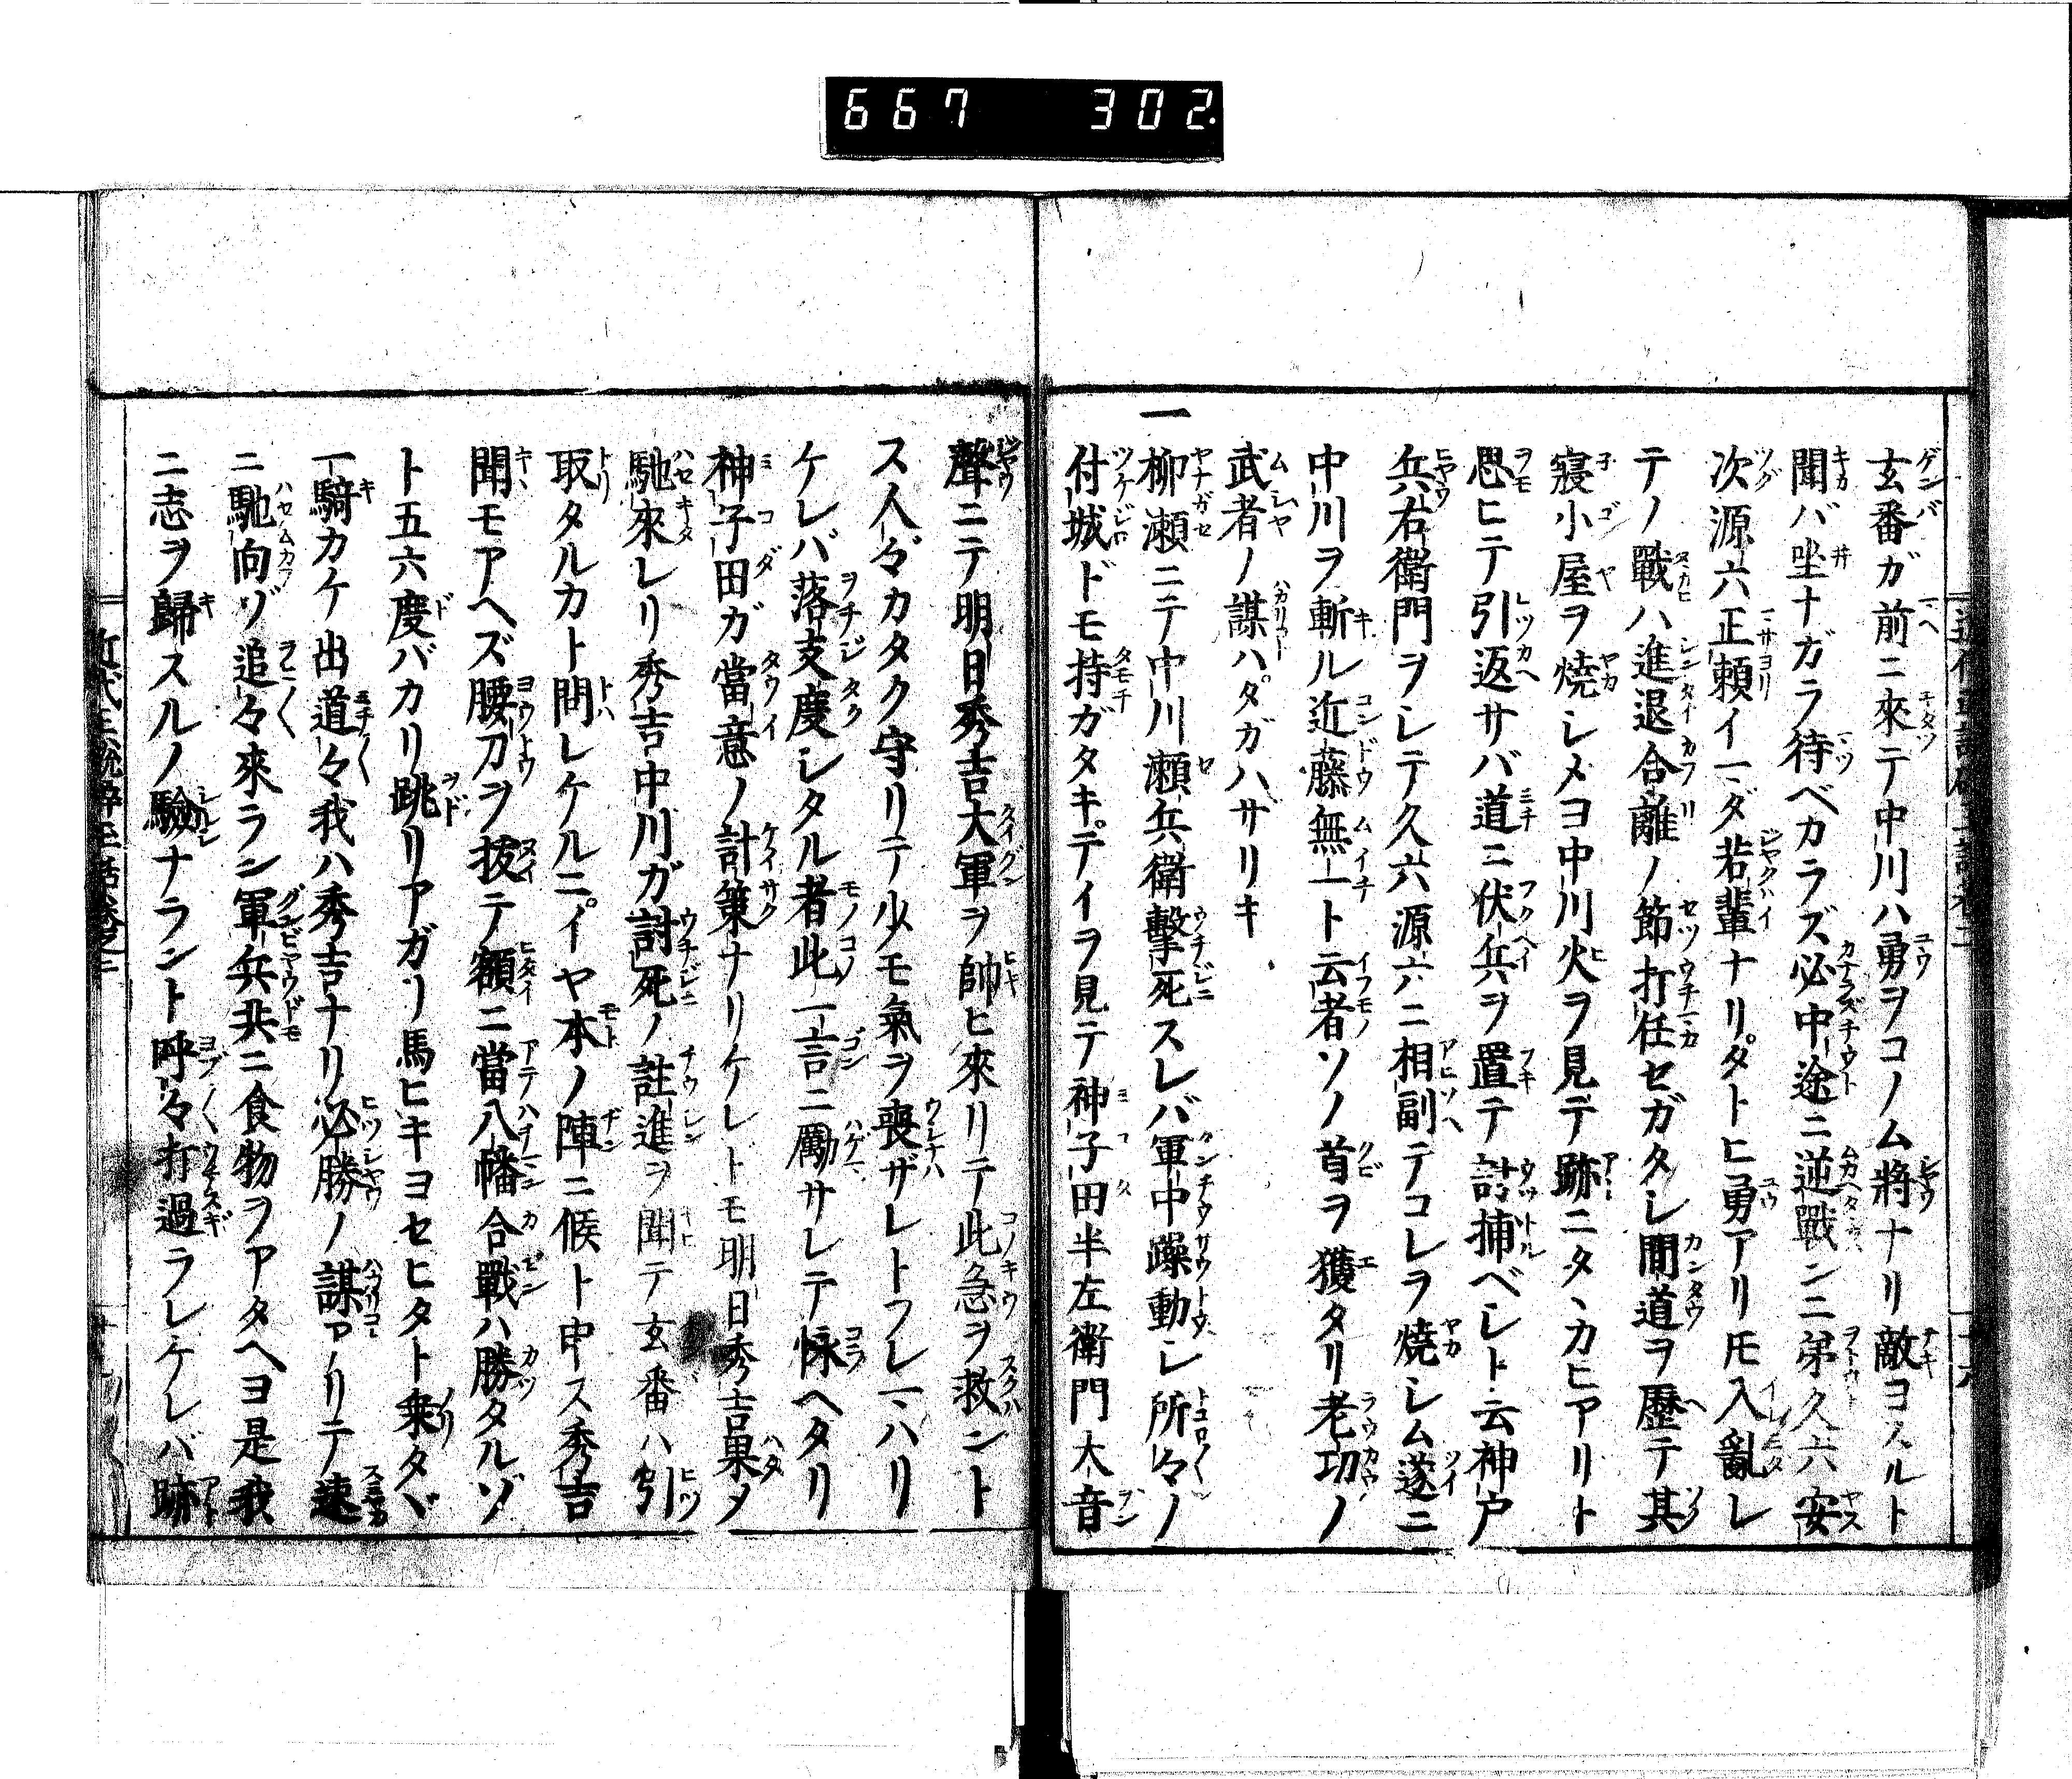 667 302.
玄番ガ前ニ來テ中川ハ勇ヲコノム將ナリ敵ヨスルト
聞バ坐ナガラ待ベカラズ必中途ニ逆戰ン二弟久六安
次源六正頼イマダ若輩ナリタトヒ勇アリ𪜈入亂レ
テノ戰ハ進退合離ノ節打任セガタシ間道ヲ歴テ其
寢小屋ヲ焼シメヨ中川火ヲ見テ跡ニタヽカヒアリト
思ヒテ引返サバ道ニ伏兵ヲ置テ討捕ベシト云神戸
兵右衛門ヲシテ久六源六ニ相副テコレヲ焼シム遂ニ
中川ヲ斬ル近藤無一ト云者ソノ首ヲ獲タリ老功ノ
武者ノ謀ハタガハザリキ
一柳瀬ニテ中川瀬兵衛擊死スレバ軍中躁動シ所々ノ
付城ドモ持ガタキテイヲ見テ神子田半左衛門大音
聲ニテ明日秀吉大軍ヲ帥ヒ來リテ此急ヲ救ントス
ス人々カタク守リテ少モ氣ヲ喪ザレトフレマハリ
ケレバ落支度シタル者此一言ニ勵サレテ怺ヘタリ
神子田ガ當意ノ計策ナリケレトモ明日秀吉果タメ
馳來レリ秀吉中川ガ討死ノ註進ヲ聞テ玄番ハ引
取タルカト問レケルニイヤ本ノ陣ニ候ト申ス秀吉
聞モアヘズ腰刀ヲ抜テ額ニ當八幡合戰ハ勝タルゾ
ト五六度バカリ跳リアガリ馬ヒキヨセヒタト乗タヾ
一騎カケ出道々我ハ秀吉ナリ必勝ノ謀アリテ速
ニ馳向ゾ追々來ラン軍兵共ニ食物ヲアタヘヨ是我
ニ志ヲ歸スルノ驗ナラント呼々打過ラレケレバ跡